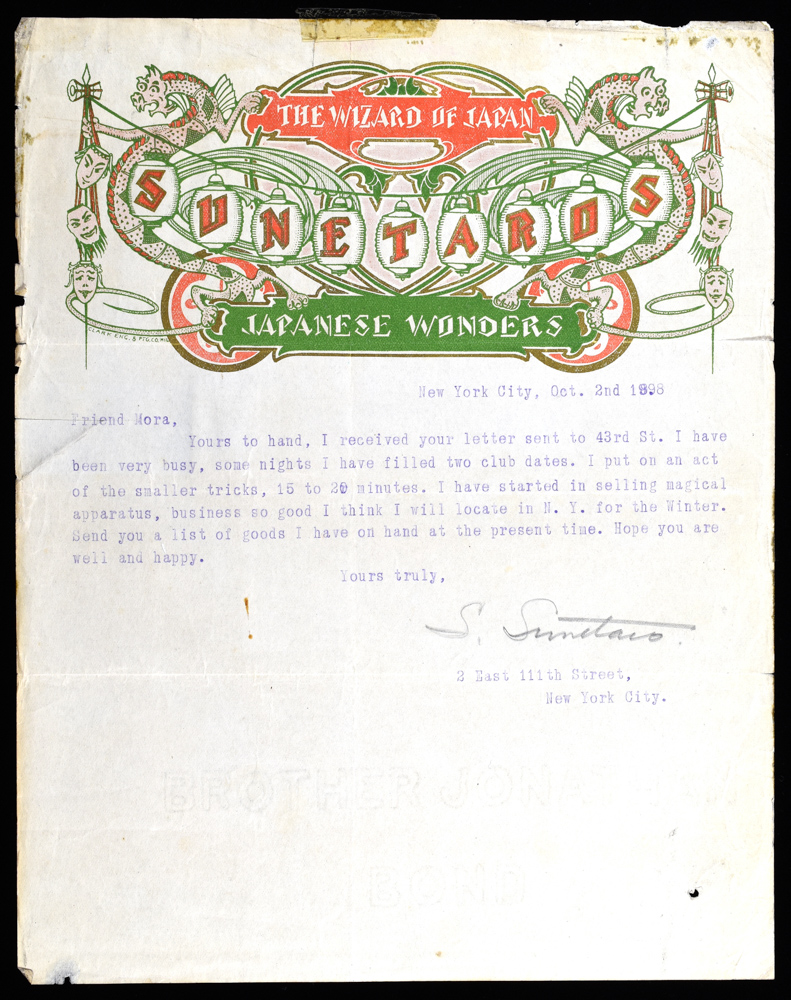 THE WIZARD OF JAPAN
SUNETAROS
JAPANESE WONDERS
CLARK ENG. & PTG. CO. MIL.
New York City, Oct. 2nd 1898
Friend Mora,
Yours to hand, I received your letter sent to 43rd St. I have
been very busy, some nights I have filled two club dates. I put on an act
of the smaller tricks, 15 to 20 minutes. I have started in selling magical
apparatus, business so good I think I will locate in N. Y. for the Winter.
Send you a list of goods I have on hand at the present time. Hope you are
well and happy.
Yours truly,
S. Sunetaro.
2 East 111th Street,
New York City.
BROTHER JONATHAN
BOND